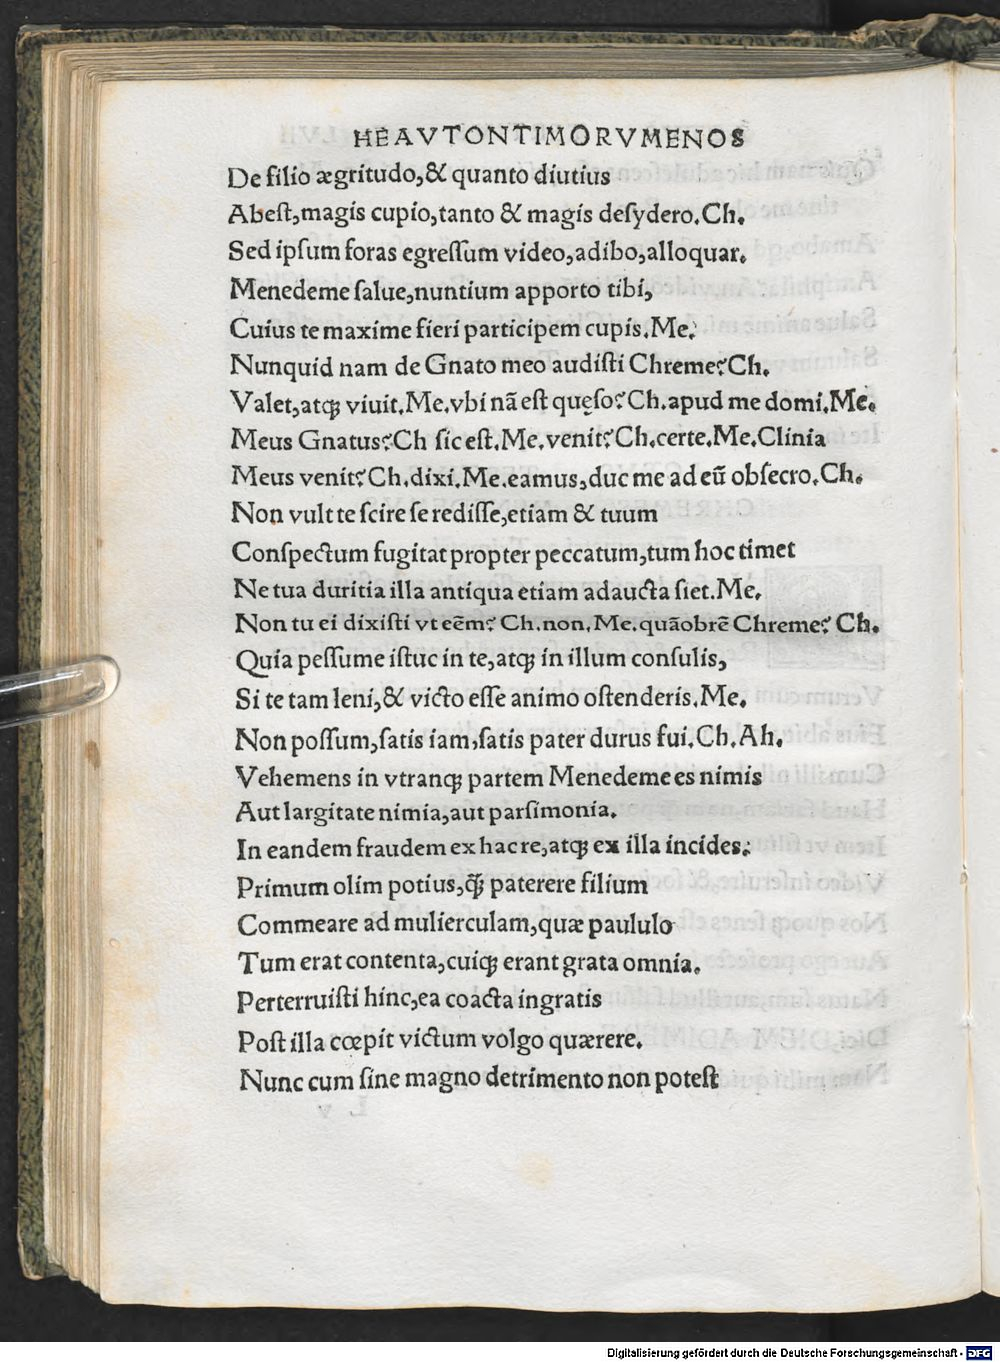 HEAVTONTIMORVMENOS
De filio ægritudo,& quanto diutius
Abeſt,magis cupio,tanto & magis deſydero.Ch.
Sed ipſum foras egreſſum video,adibo,alloquar.
Menedeme ſalue,nuntium apporto tibi,
Cuius te maxime fieri participem cupis.Me.
Nunquid nam de Gnato meo audiſti Chreme?Ch.
Valet,atqꝫ viuit.Me.vbi nã eſt quęſo?Ch.apud me domi.Me.
Meus Gnatus?Ch ſic eſt.Me.venit?Ch.certe.Me.Clinia
Meus venit?Ch.dixi.Me.eamus,duc me ad eũ obſecro.Ch.
Non vult te ſcire ſe rediſſe,etiam & tuum
Conſpectum fugitat propter peccatum,tum hoc timet
Ne tua duritia illa antiqua etiam adaucta ſiet.Me.
Non tu ei dixiſti vt eẽm? Ch.non.Me.quãobrẽ Chreme? Ch.
Quia peſſume iſtuc in te,atqꝫ in illum conſulis,
Si te tam leni,& victo eſſe animo oſtenderis.Me.
Non poſſum,ſatis iam,ſatis pater durus fui.Ch.Ah.
Vehemens in vtranqꝫ partem Menedeme es nimis
Aut largitate nimia,aut parſimonia.
In eandem fraudem ex hac re,atqꝫ ex illa incides:
Primum olim potius,q̃ꝫ paterere filium
Commeare ad mulierculam,quæ paululo
Tum erat contenta,cuiqꝫ erant grata omnia.
Perterruiſti hinc,ea coacta ingratis
Poſt illa cœpit victum volgo quærere.
Nunc cum ſine magno detrimento non poteſt
Digitalisierung gefördert durch die Deutsche Forschungsgemeinschaft - DFG